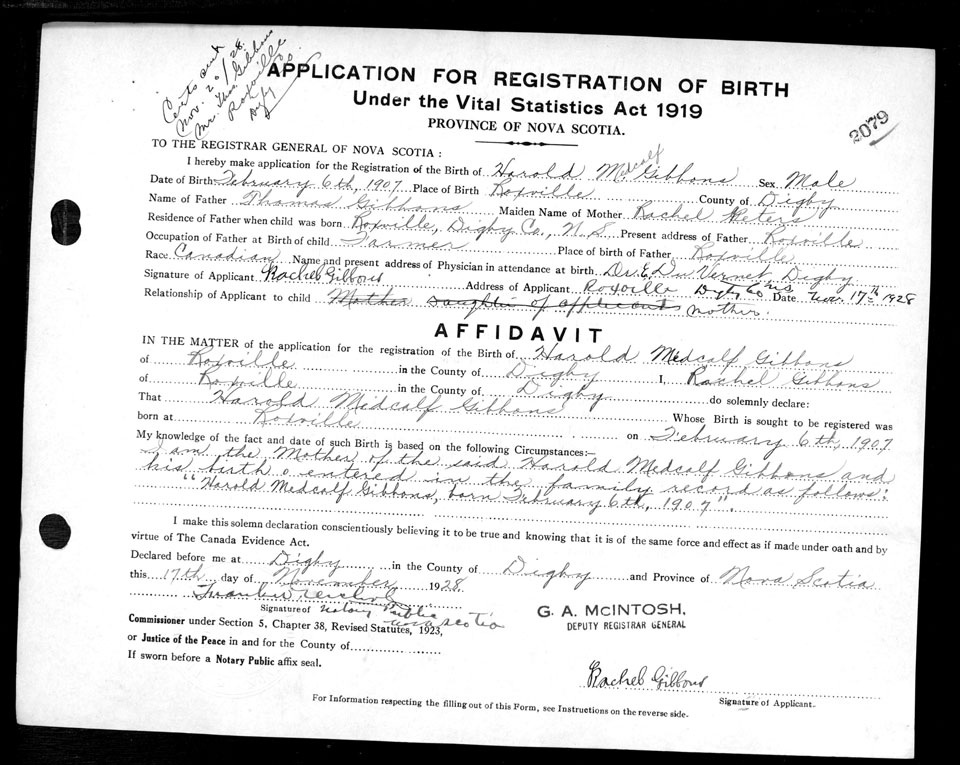 Certs sent
Nov. 20/28.
Mr. Thos. Gibbons
Roxville
Digby Co.
APPLICATION FOR REGISTRATION OF BIRTH
Under the Vital Statistics Act 1919
PROVINCE OF NOVA SCOTIA.
2079
TO THE REGISTRAR GENERAL OF NOVA SCOTIA :
I hereby make application for the Registration of the Birth of Harold Medcalf Gibbons Sex Male
Date of Birth February 6th, 1907 Place of Birth Roxville County of Digby
Name of Father Thomas Gibbons Maiden Name of Mother Rachel Peters
Residence of Father when child was born Roxville, Digby Co., N.S. Present address of Father Roxville
Occupation of Father at Birth of child Farmer Place of birth of Father Roxville
Race Canadian Name and present address of Physician in attendance at birth Dr. E. Du Vernet Digby
Signature of Applicant Rachel Gibbons Address of Applicant Roxville Digby Co NS Date Nov. 17th 1928
Relationship of Applicant to child Mother daughter of applicant mother.
AFFIDAVIT
IN THE MATTER of the application for the registration of the Birth of Harold Medcalf Gibbons
of Roxville in the County of Digby I, Rachel Gibbons
of Roxville in the County of Digby do solemnly declare:
That Harold Medcalf Gibbons Whose Birth is sought to be registered was
born at Roxville on February 6th, 1907
My knowledge of the fact and date of such Birth is based on the following Circumstances:—
I am the Mother of the said Harold Medcalf Gibbons and
his birth o entered in the family record as follows:
"Harold Medcalf Gibbons, born February 6th, 1907".
I make this solemn declaration conscientiously believing it to be true and knowing that it is of the same force and effect as if made under oath and by
virtue of The Canada Evidence Act.
Declared before me at Digby in the County of Digby and Province of Nova Scotia
this 17th day of November 1928
Signature of Notary Public
Nova Scotia
Commissioner under Section 5, Chapter 38, Revised Statutes, 1923,
or Justice of the Peace in and for the County of
If sworn before a Notary Public affix seal.
G. A. McINTOSH,
DEPUTY REGISTRAR GENERAL
Rachel Gibbons
Signature of Applicant.
For Information respecting the filling out of this Form, see Instructions on the reverse side.